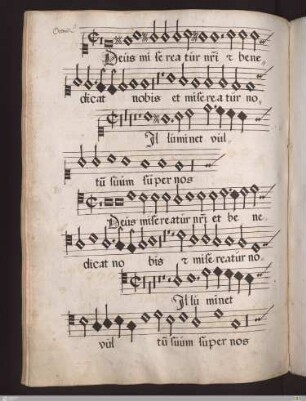 Deus mi se rea tur nr̃i & bene
dicat nobis et misereatur no-
Il luminet vul
tũ suum super nos
Deus misereatur nr̃i et be ne
dicat no bis & misereatur no-
Illu minet
vul tũ suum super nos